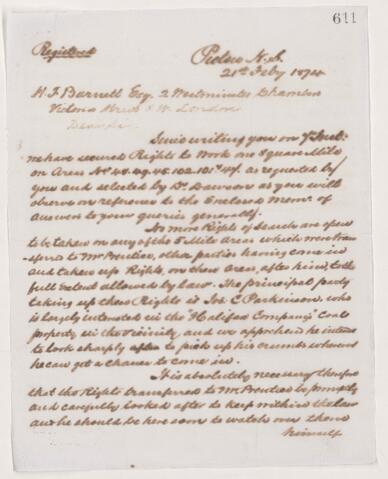 611
Registered
Pictou N.S.
21st Feby 1874
H. F. Barnett Esq. 2 Westminster Chambers
Victoria Street S.W. London
Dear Sir
Since writing you on Inst.
we have secured Rights to Work one Square Mile
on Areas Nos 48. 49. 45. 102. 101 as requested by
you and selected by Dr. Dawson as you will
observe on reference to the Enclosed Memo of
answers to your queries generally.
No more Rights of Search are open
to be taken on any of the 5 Mile areas which were trans-
ferred to Mr Prentice, other parties having come in
and taken up Rights, on these areas, after him to the
full extent allowed by Law. The principal party
taking up these Rights is Jos. C. Parkinson, who
is largely interested in the "Halifax Company's" coal
property in the vicinity and we apprehend he intends
to look sharply after to pick up his crumbs wherever
he can get a chance to come in.
It is absolutely necessary therefore
that the Rights transferred to Mr Prentice be promptly
and carefully looked after to keep within the law
and he should be here soon to watch over them
himself